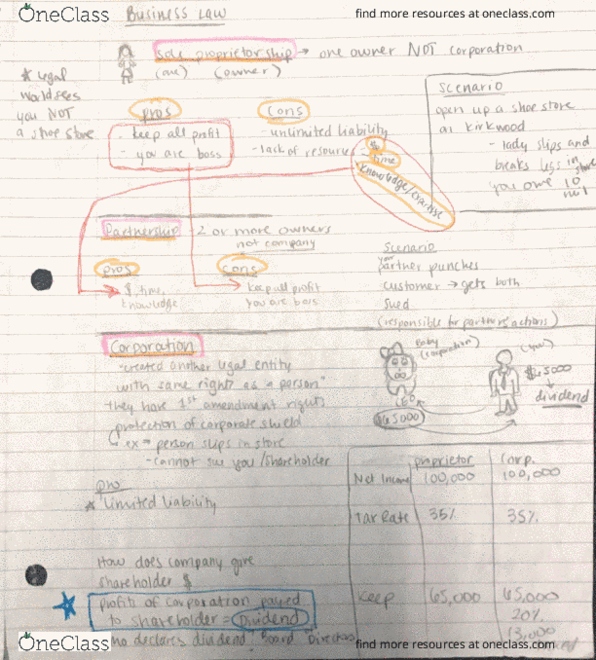 OneClass
Business Law
find more resources at oneclass.com
sole proprietorship → one owner NOT corporation
(one) (owner)
* legal
world sees
you NOT
a shoe store
pros
- keep all profit
- you are boss
cons
- unlimited liability
- lack of resources
$
time
knowledge/expertise
Scenario
open up a shoe store
on kirkwood
- lady slips and
breaks legs in store
you owe 10
mil
Partnership 2 or more owners
not company
pros
$, time,
knowledge
cons
keep all profit
you are boss
Scenario
your
partner punches
customer → gets both
sued
(responsible for partners actions)
Corporation
- created another legal entity
with same rights as a person"
they have 1st amendment rights
protection of corporate shield
ex → person slips in store
- cannot sue you/shareholder
Baby
(corporation)
(you)
65000
$65000
dividend
pro
* limited liability
How does company give
shareholder $
profits of corporation payed
to shareholder = Dividend
who declares dividend? Board Directors
proprietor corp.
Net Income 100,000 100,000
Tax Rate 35% 35%
Keep 65,000 65,000
20%
13,000
OneClass
find more resources at oneclass.com